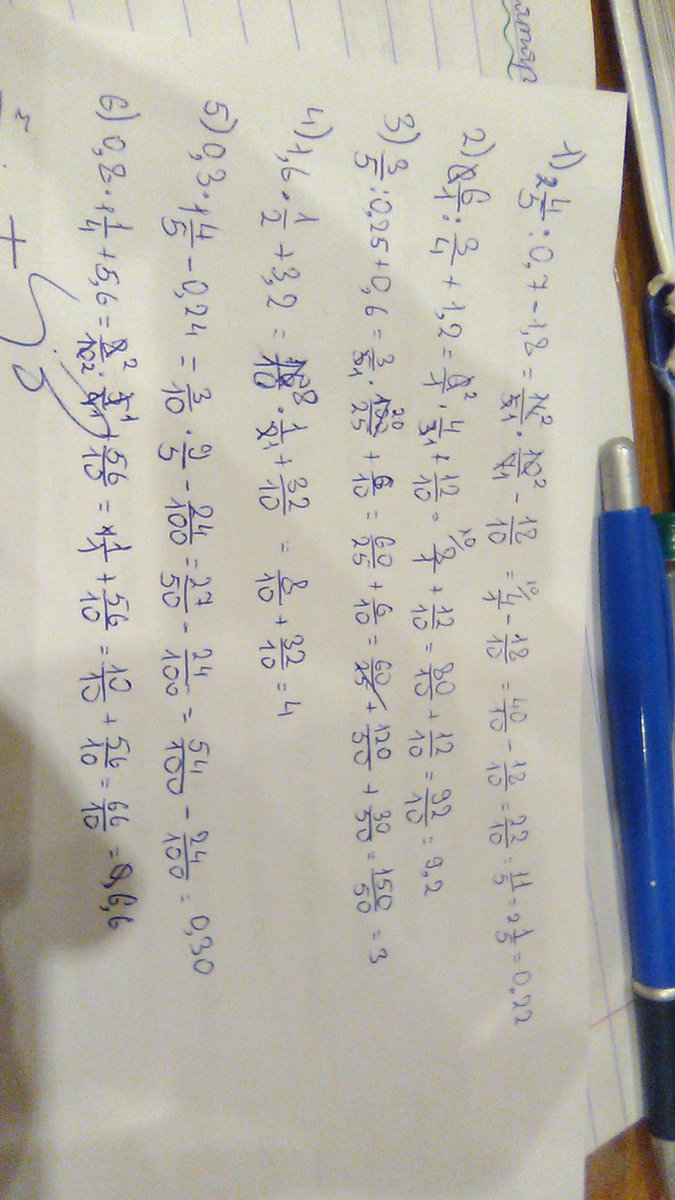 1) 2 4/5 : 0,7 - 1,8 = 14²/5₁ · 10²/7₁ - 18/10 = ¹⁰⁾4/1 - 18/10 = 40/10 - 18/10 = 22/10 = 11/5 = 2 1/5 = 0.22
2) 6/1 : 3/4 + 1,2 = 6²/1 · 4/3₁ + 12/10 = ¹⁰⁾8/1 + 12/10 = 80/10 + 12/10 = 92/10 = 9,2
3) 3/5 : 0,25 + 0,6 = 3/5₁ · 100²⁰/25 + 6/10 = 60/25 + 6/10 = 60/25 + 120/50 + 30/50 = 150/50 = 3
4) 1,6 · 1/2 + 3,2 = 16⁸/10 · 1/2₁ + 32/10 = 8/10 + 32/10 = 4
5) 0,3 · 1 4/5 - 0,24 = 3/10 · 9/5 - 24/100 = 27/50 - 24/100 = 54/100 - 24/100 = 0,30
6) 0,8 · 1 1/4 + 5,6 = 8²/10₂ · 5¹/4₁ + 56/10 = 1/1 + 56/10 = 10/10 + 56/10 = 66/10 = 6,6